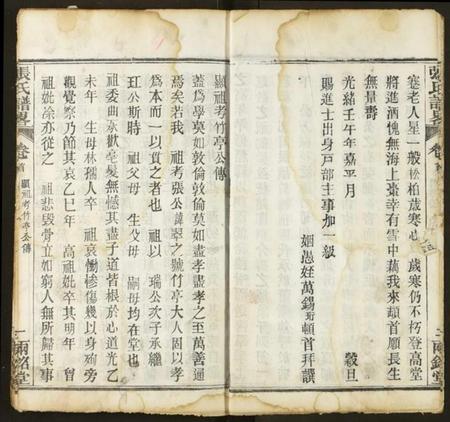 張氏譜畧
卷首
兩銘堂
寒老人星一般松柏歲寒心 歲寒仍不朽登高堂
將進酒愧無海上棗幸有雪中藕我來頓首願長生
無量壽
光緒壬午年嘉平月 穀旦
賜進士出身戶部主事加一級
姻愚姪萬錫珩頓首拜譔
顯祖考竹亭公傳
蓋爲學莫如敦倫敦倫莫如盡孝盡孝之至萬善通
焉矣若我 祖考張公諱 翠之號竹亭大人固以孝
爲本而一以貫之者也 祖以 瑞公次子承繼
玒公斯時 祖父母 生父母 嗣母均在堂也
祖委曲承歡毫髮無憾其盡子道者根於心道光乙
未年 生母林孺人卒 祖哀慟慘傷幾以身殉旁
觀覺察乃節其哀乙巳年 高祖妣卒其明年 曾
祖妣涂亦從之 祖悲毀骨立如窮人無所歸其事
張氏譜畧
卷首
顯祖考竹亭公傳
一
兩銘堂